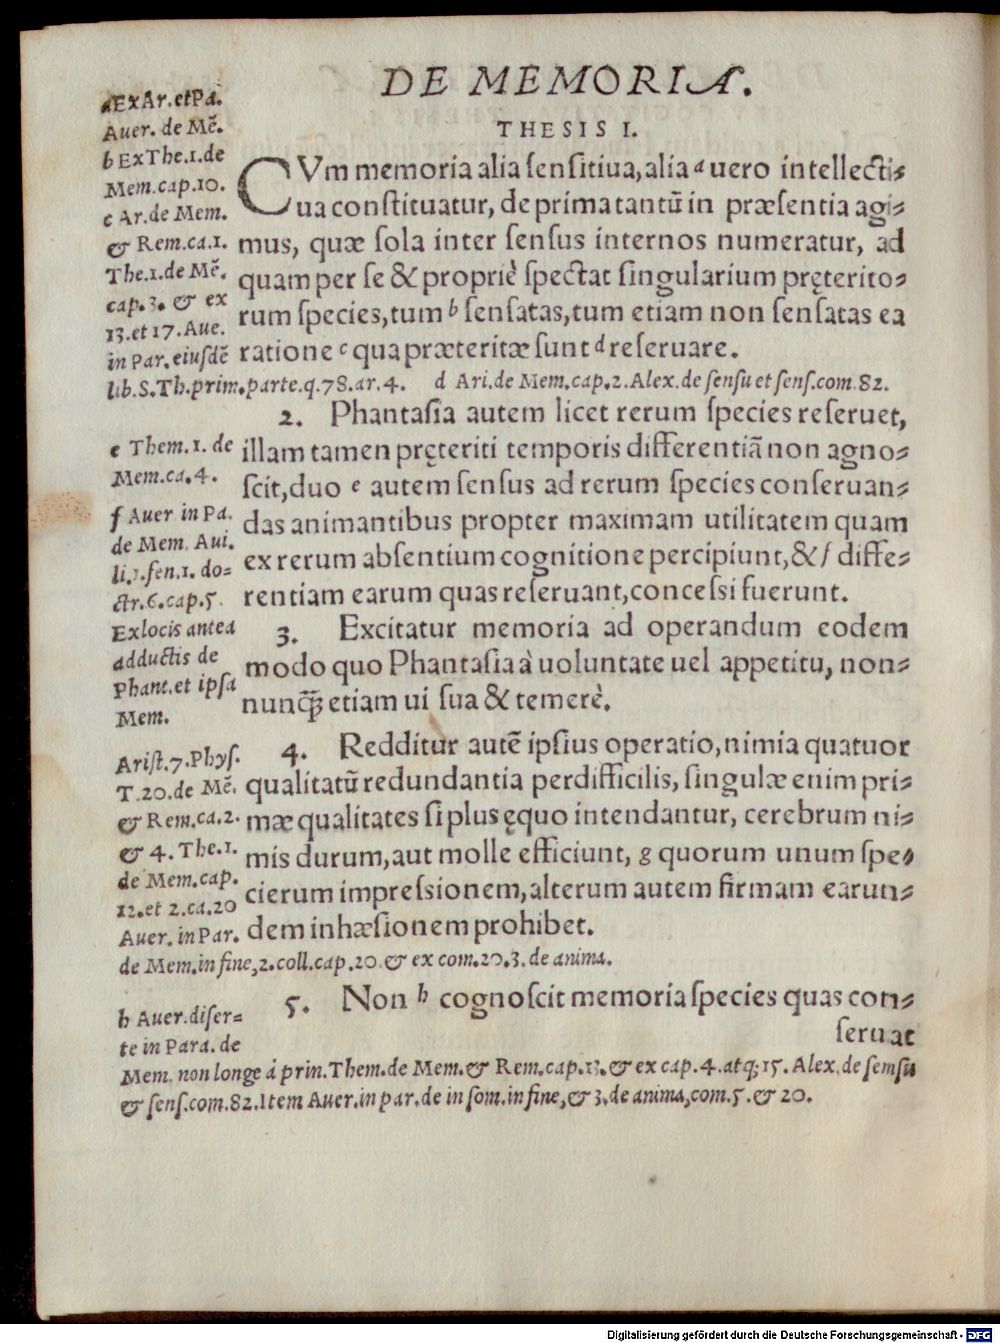 DE MEMORIA.
THESIS I.
a Ex Ar. et Pa.
Auer. de Mẽ.
b Ex The. 1. de
Mem. cap. 10.
c Ar. de Mem.
& Rem. ca. 1.
The. 1. de Mẽ.
cap. 3. & ex
13. et 17. Aue.
in Par. eiusdẽ
lib. S. Th. prim. parte. q. 78. ar. 4. d Ari. de Mem. cap. 2. Alex. de sensu et sens. com. 82.
CVm memoria alia sensitiua, alia a uero intellecti-
ua constituatur, de prima tantũ in præsentia agi-
mus, quæ sola inter sensus internos numeratur, ad
quam per se & propriè spectat singularium pręterito-
rum species, tum b sensatas, tum etiam non sensatas ea
ratione c qua præteritæ sunt d reseruare.
2. Phantasia autem licet rerum species reseruet,
illam tamen pręteriti temporis differentiã non agno-
scit, duo e autem sensus ad rerum species conseruan-
das animantibus propter maximam utilitatem quam
ex rerum absentium cognitione percipiunt, & f diffe-
rentiam earum quas reseruant, concessi fuerunt.
e Them. 1. de
Mem. ca. 4.
f Auer in Pa.
de Mem. Aui.
li. 1. fen. 1. do-
ctr. 6. cap. 5.
3. Excitatur memoria ad operandum eodem
modo quo Phantasia à uoluntate uel appetitu, non-
nunq̃; etiam ui sua & temerè.
Ex locis antea
adductis de
Phant. et ipsa
Mem.
4. Redditur autẽ ipsius operatio, nimia quatuor
qualitatũ redundantia perdifficilis, singulæ enim pri-
mæ qualitates si plus ęquo intendantur, cerebrum ni-
mis durum, aut molle efficiunt, g quorum unum spe-
cierum impressionem, alterum autem firmam earun-
dem inhæsionem prohibet.
Arist. 7. Phys.
T. 20. de Mẽ.
& Rem. ca. 2.
& 4. The. 1.
de Mem. cap.
12. et 2. ca. 20
Auer. in Par.
de Mem. in fine, 2. coll. cap. 20. & ex com. 20. 3. de anima.
5. Non h cognoscit memoria species quas con-
seruat
h Auer. diser-
te in Para. de
Mem. non longe á prin. Them. de Mem. & Rem. cap. 13. & ex cap. 4. atq; 15. Alex. de sensu
& sens. com. 82. Item Auer. in par. de in som. in fine, & 3. de anima, com. 5. & 20.
Digitalisierung gefördert durch die Deutsche Forschungsgemeinschaft - DFG